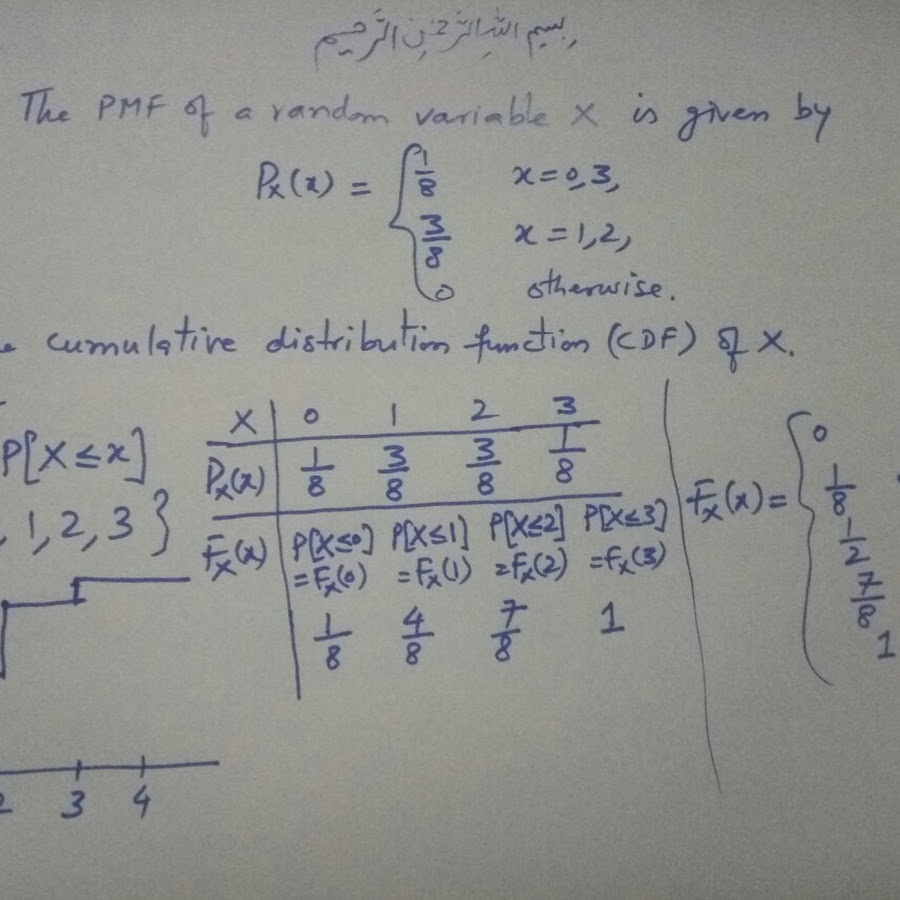 بسم الله الرحمن الرحيم
The PMF of a random variable X is given by
Pₓ(x) = { 1/8 x=0,3,
3/8 x=1,2,
0 otherwise.
cumulative distribution function (CDF) of X.
P[X≤x]
, 1, 2, 3 }
X 0 1 2 3
Pₓ(x) 1/8 3/8 3/8 1/8
Fₓ(x) P[X≤0] P[X≤1] P[X≤2] P[X≤3]
=Fₓ(0) =Fₓ(1) =Fₓ(2) =Fₓ(3)
1/8 4/8 7/8 1
Fₓ(x) = { 0
1/8
1/2
7/8
1
2 3 4